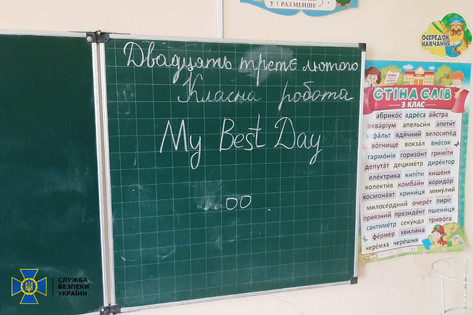 У 7 РАЗ МЕНШЕ
ОСЕРЕДОК
НАВЧАННЯ
Двадцять третє лютого
Класна робота
My Best Day
оо
СТІНА СЛІВ
3 КЛАС
абрикос адреса айстра
акваріум апельсин апетит
асфальт вдячний велосипед
вогнище вокзал внесок
гармонія горизонт гриміти
депутат дециметр директор
електрика кипіти кишеня
колектив комбайн коридор
космонавт криниця минулий
милосердний очерет пиріг
приязний президент пшениця
сантиметр секунда тривога
фермер хвилина
черемха черешня
СЛУЖБА
БЕЗПЕКИ
УКРАЇНИ